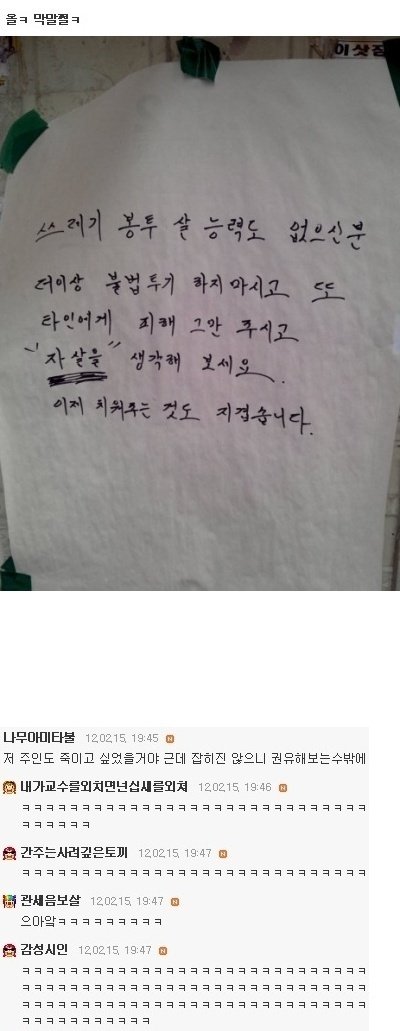 올ㅋ 막말쩔ㅋ
이삿짐
쓰레기 봉투 살 능력도 없으신분
더이상 불법투기 하지마시고 또
타인에게 피해 그만 주시고
"자살을" 생각해 보세요.
이제 치워주는 것도 지겹습니다.
나무아미타불 12.02.15, 19:45 N
저 주인도 죽이고 싶었을거야 근데 잡히진 않으니 권유해보는수밖에
내가교수를외치면넌십새를외쳐 12.02.15, 19:46 N
ㅋㅋㅋㅋㅋㅋㅋㅋㅋㅋㅋㅋㅋㅋㅋㅋㅋㅋㅋㅋㅋㅋㅋㅋㅋㅋㅋㅋㅋ
ㅋㅋㅋㅋㅋㅋ
간주는사려깊은토끼 12.02.15, 19:47 N
ㅋㅋㅋㅋㅋㅋㅋㅋㅋㅋㅋㅋㅋㅋㅋㅋㅋㅋㅋㅋㅋㅋㅋㅋㅋㅋㅋㅋㅋ
관세음보살 12.02.15, 19:47 N
으아앜ㅋㅋㅋㅋㅋㅋㅋㅋㅋ
감성시인 12.02.15, 19:47 N
ㅋㅋㅋㅋㅋㅋㅋㅋㅋㅋㅋㅋㅋㅋㅋㅋㅋㅋㅋㅋㅋㅋㅋㅋㅋㅋㅋㅋㅋ
ㅋㅋㅋㅋㅋㅋㅋㅋㅋㅋㅋㅋㅋㅋㅋㅋㅋㅋㅋㅋㅋㅋㅋㅋㅋㅋㅋㅋㅋ
ㅋㅋㅋㅋㅋㅋㅋㅋㅋㅋㅋㅋㅋㅋㅋㅋㅋㅋㅋㅋㅋㅋㅋㅋㅋㅋㅋㅋㅋ
ㅋㅋㅋㅋㅋㅋㅋㅋㅋㅋㅋ